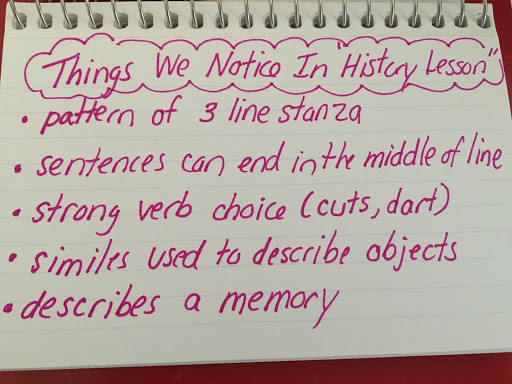 Things We Notice In "History Lesson"
• pattern of 3 line stanza
• sentences can end in the middle of line
• strong verb choice (cuts, dart)
• similes used to describe objects
• describes a memory